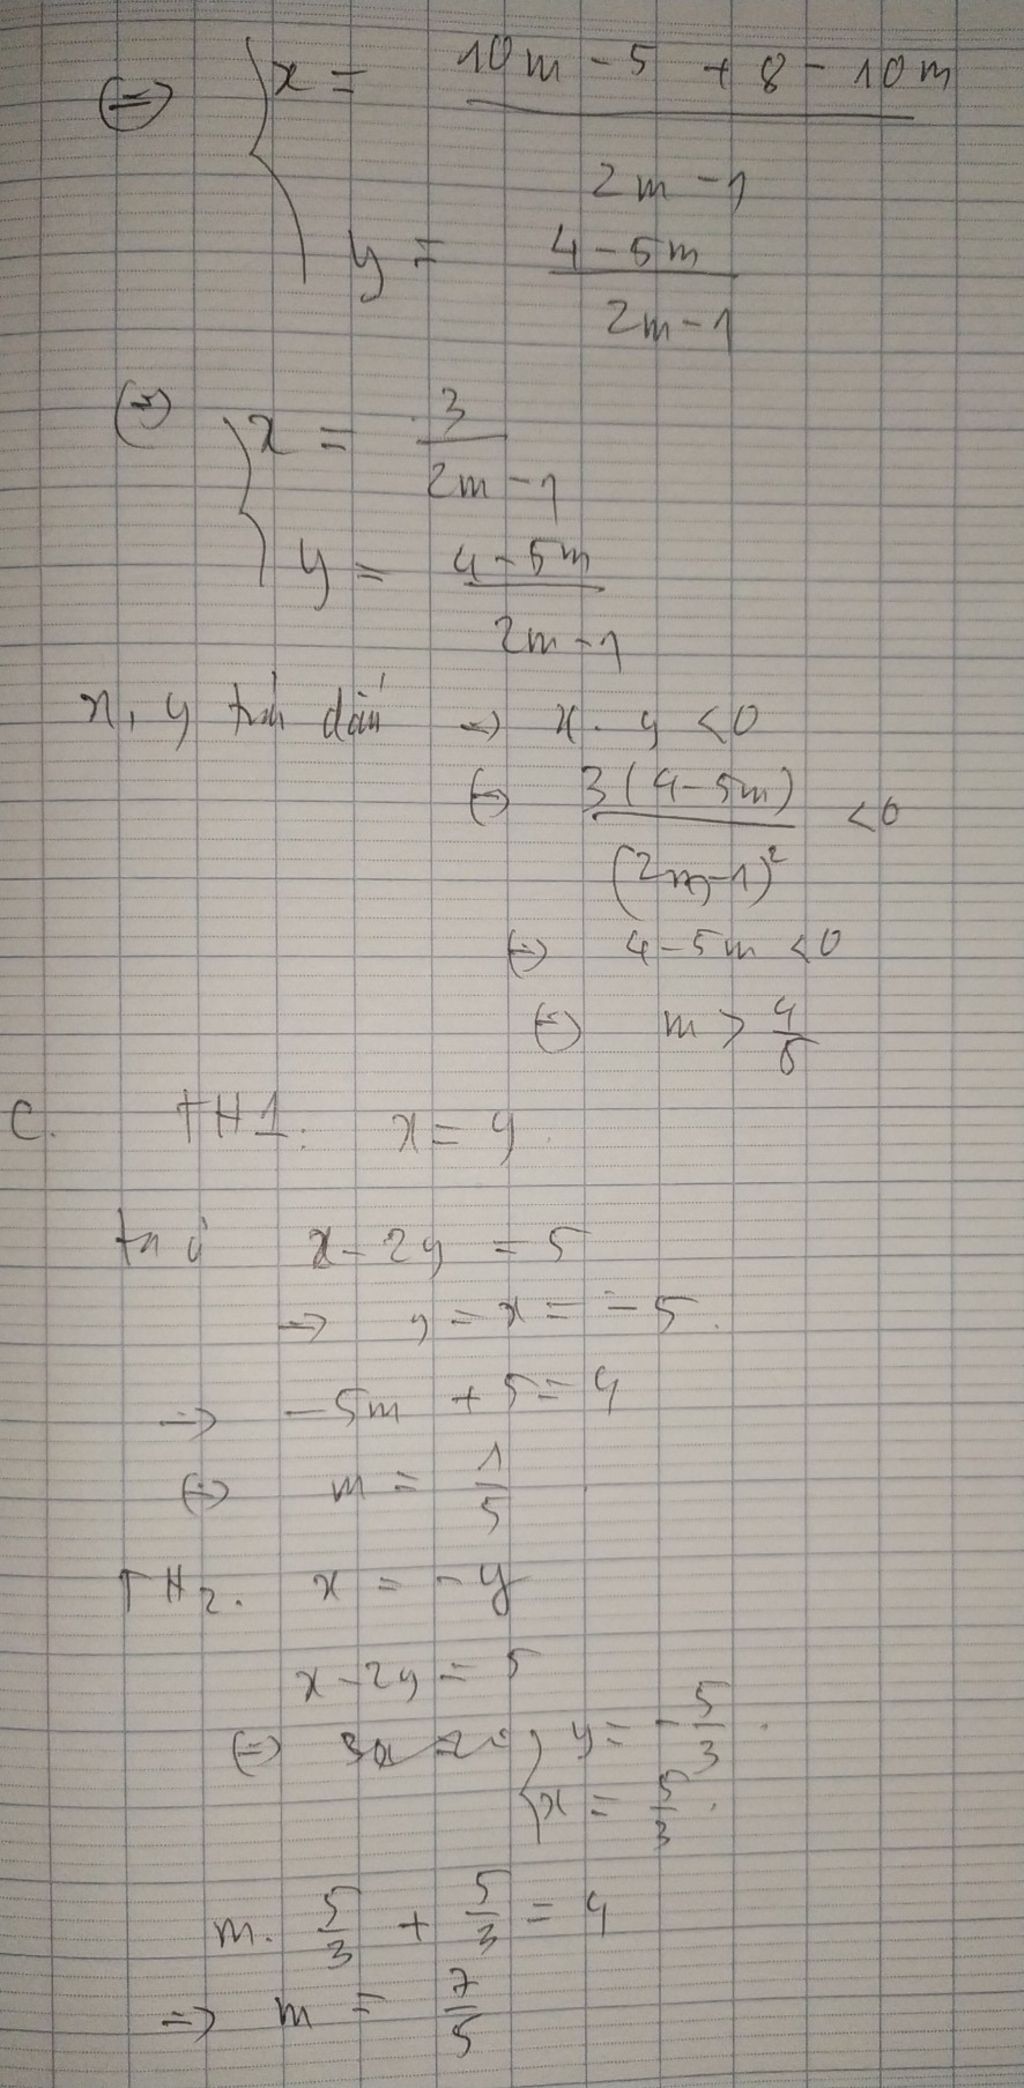 ⇔ { x = (10m - 5 + 8 - 10m) / (2m - 1)
y = (4 - 5m) / (2m - 1)
⇔ { x = 3 / (2m - 1)
y = (4 - 5m) / (2m - 1)
x, y trái dấu → x . y < 0
⇔ 3(4 - 5m) / (2m - 1)² < 0
⇔ 4 - 5m < 0
⇔ m > 4/5
C. TH1: x = y
ta có x - 2y = 5
→ y = x = -5.
→ -5m + 5 = 4
⇔ m = 1/5
TH2. x = -y
x - 2y = 5
⇔ { y = -5/3.
x = 5/3.
m. 5/3 + 5/3 = 4
⇒ m = 7/5